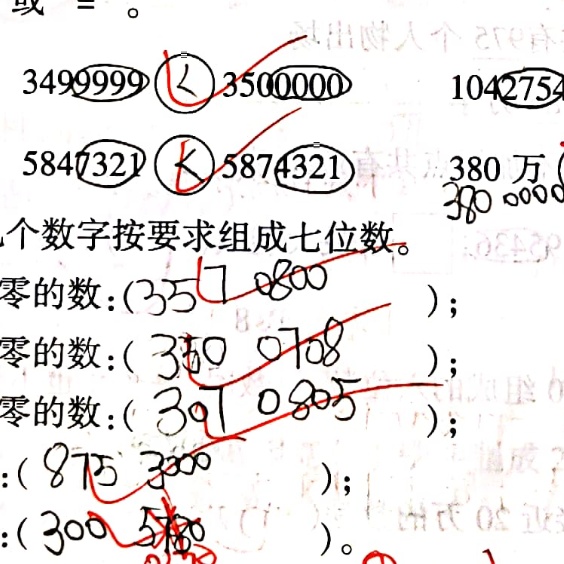 或 " = " 。
3499999 < 3500000 1042754
5847321 < 5874321 380 万 (
380 0000
个数字按要求组成七位数。
零的数:(357 0800 );
零的数:( 350 0708 );
零的数:( 307 0805 );
:( 875 3000 );
:( 300 5 )。